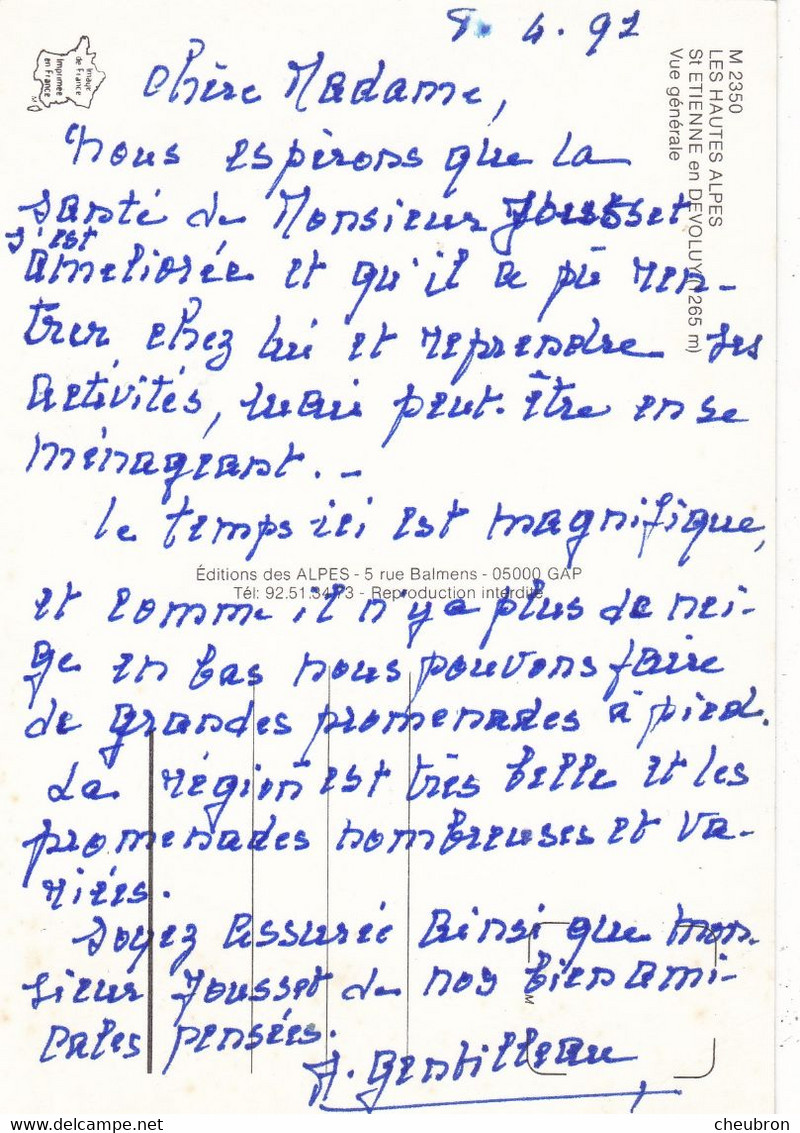 8. 4. 92
Chère Madame,
Nous espérons que la
santé de Monsieur Jousset
s'est
améliorée et qu'il a pû ren-
trer chez lui et reprendre ses
activités, mais peut-être en se
ménageant. -
Le temps ici est magnifique,
et comme il n'y a plus de nei-
ge en bas nous pouvons faire
de grandes promenades à pied.
La région est très belle et les
promenades nombreuses et va-
riées.
Soyez assurée ainsi que Mon-
sieur Jousset de nos bien ami-
cales pensées.
A. Gentilleau
M 2350
LES HAUTES ALPES
St ETIENNE en DEVOLUY (1265 m)
Vue générale
Image
de France
Imprimée
en France
Éditions des ALPES - 5 rue Balmens - 05000 GAP
Tél: 92.51.34.73 - Reproduction interdite
M
cheubron